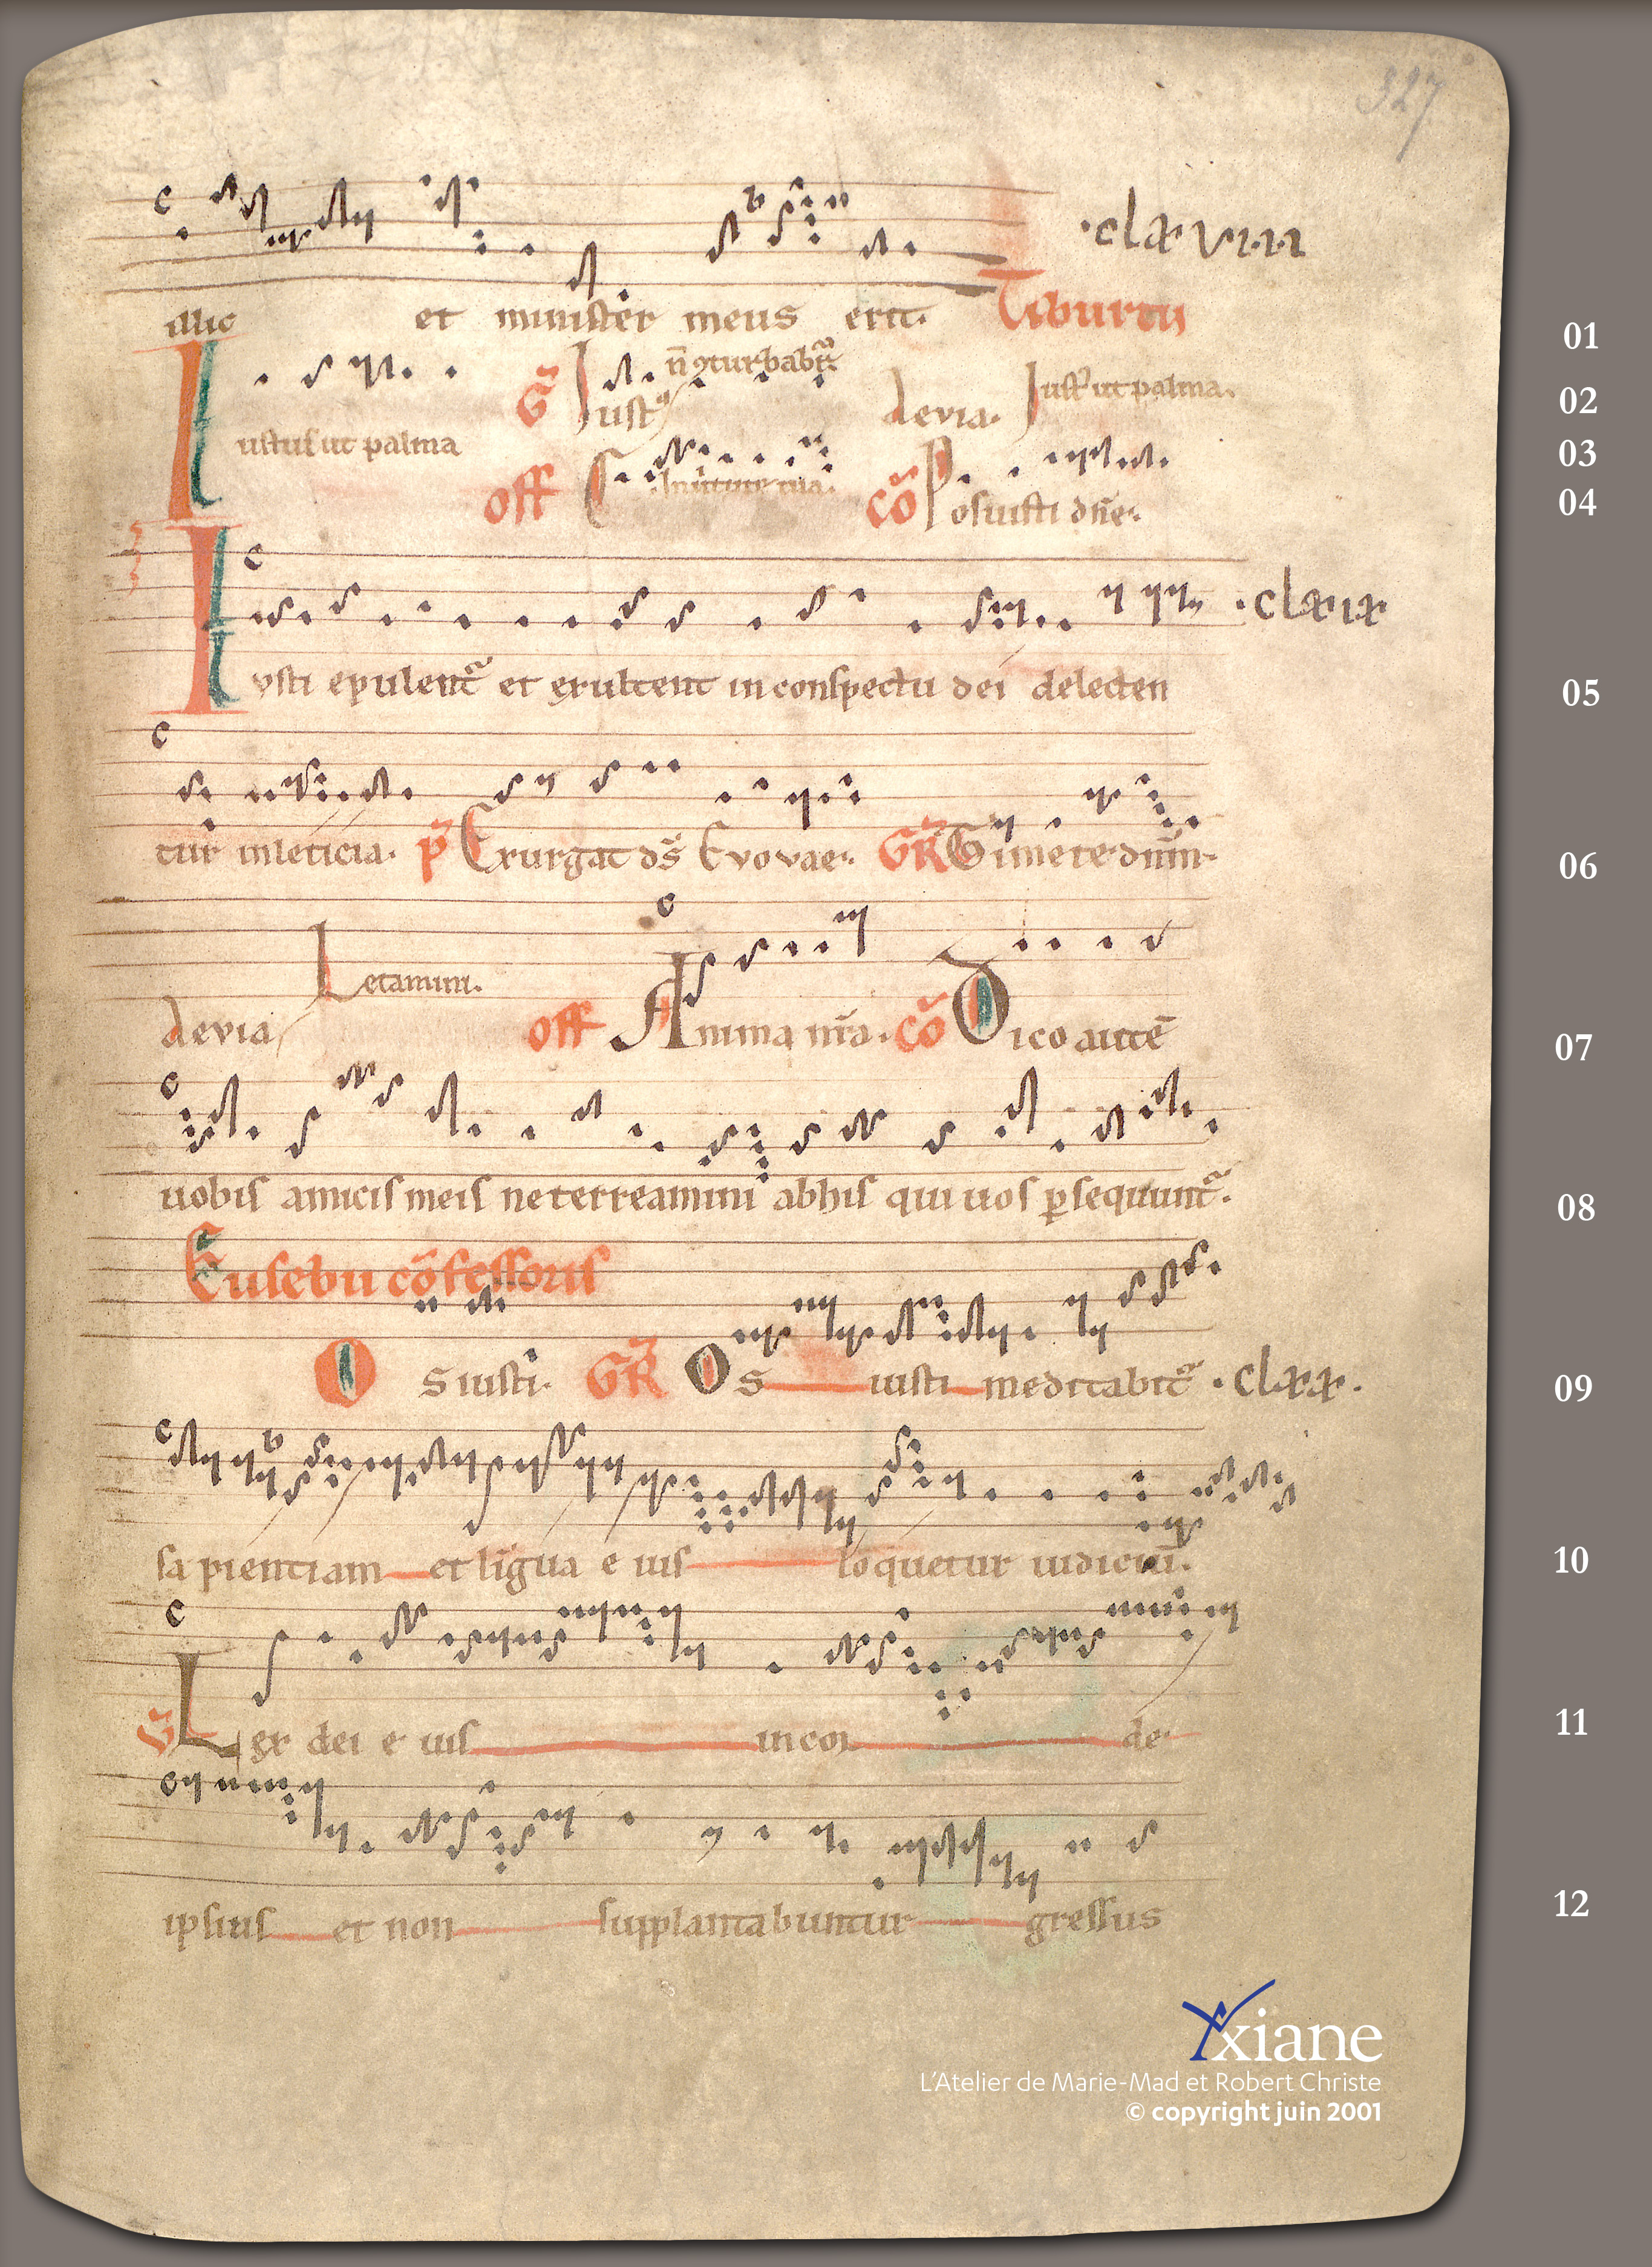 327
c
·clæ vııı
illic et minister meus erit. Tiburtii
01
G̃ Iust⁹ n̄ ꝯturbabit᷑.
Iustus ut palma devia. Iust᷑ ut palma.
02
03
off In uirtute tua. cõ Posuisti dñe.
04
c
·clæ ıæ
Iusti epulent᷑ et exultent in conspectu dei delecten
05
c
tur in leticia. p̃ Exurgat ds̄ Evovae. GR̃ Timete dn̄m.
06
c
devia Letamini. off Anima nr̄a. cõ Dico autē
07
c
uobis amicis meis ne terreamini ab his qui uos p̱sequunt᷑.
08
Eusebii cõfessoris
Os iusti. GR̃ Os iusti meditabit᷑ ·clææ.
09
c
sapientiam et līgua eius loquetur iudiciū.
10
c
Ṽ Lex dei eius in cor de
11
c
ipsius et non supplantabuntur gressus
12
xiane
L'Atelier de Marie-Mad et Robert Christe
© copyright juin 2001